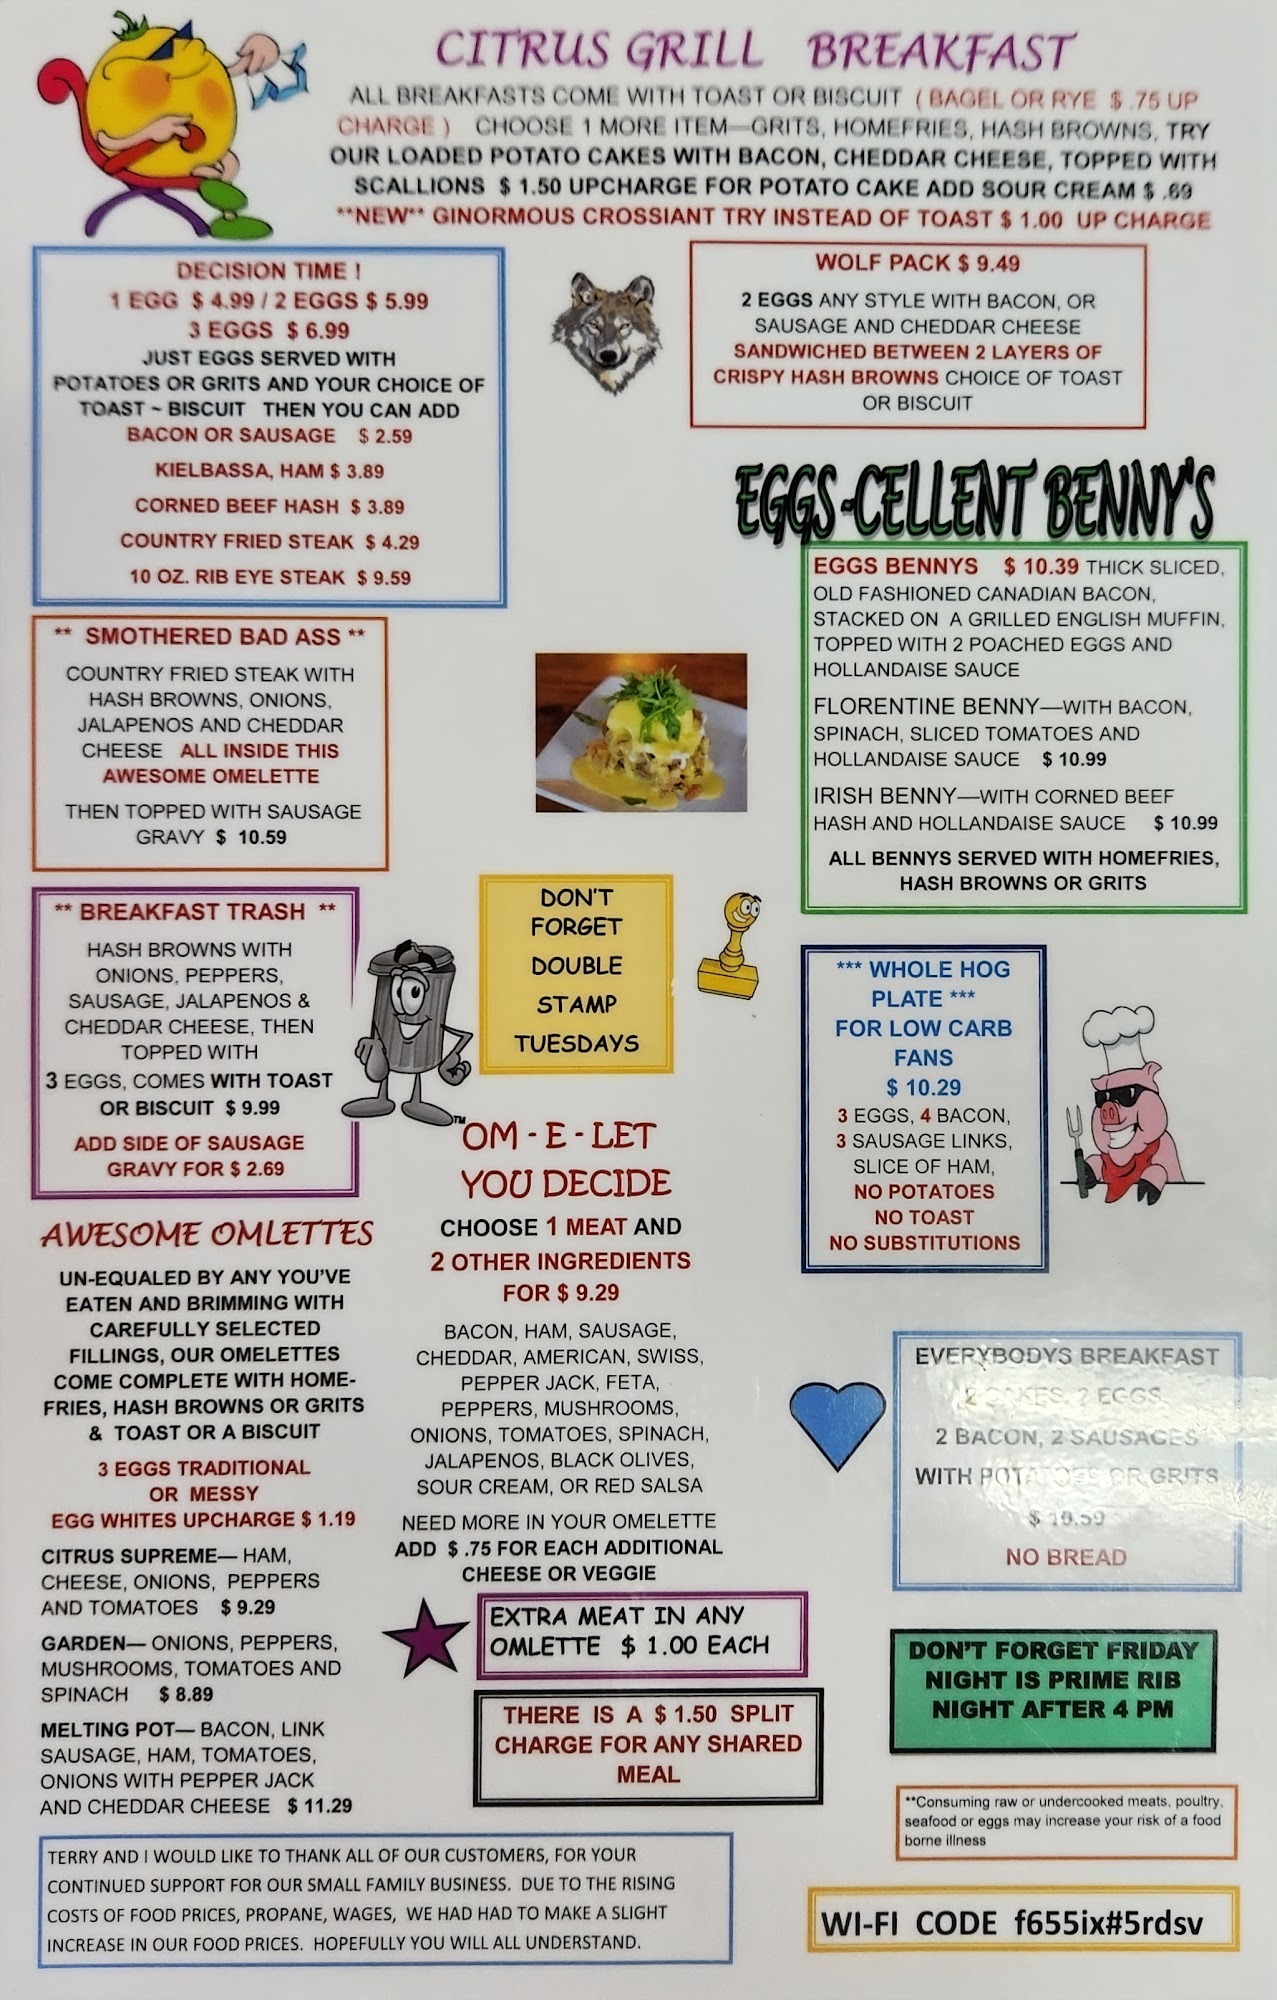 CITRUS GRILL BREAKFAST
ALL BREAKFASTS COME WITH TOAST OR BISCUIT ( BAGEL OR RYE $ .75 UP
CHARGE ) CHOOSE 1 MORE ITEM—GRITS, HOMEFRIES, HASH BROWNS, TRY
OUR LOADED POTATO CAKES WITH BACON, CHEDDAR CHEESE, TOPPED WITH
SCALLIONS $ 1.50 UPCHARGE FOR POTATO CAKE ADD SOUR CREAM $ .69
**NEW** GINORMOUS CROSSIANT TRY INSTEAD OF TOAST $ 1.00 UP CHARGE
DECISION TIME !
1 EGG $ 4.99 / 2 EGGS $ 5.99
3 EGGS $ 6.99
JUST EGGS SERVED WITH
POTATOES OR GRITS AND YOUR CHOICE OF
TOAST ~ BISCUIT THEN YOU CAN ADD
BACON OR SAUSAGE $ 2.59
KIELBASSA, HAM $ 3.89
CORNED BEEF HASH $ 3.89
COUNTRY FRIED STEAK $ 4.29
10 OZ. RIB EYE STEAK $ 9.59
WOLF PACK $ 9.49
2 EGGS ANY STYLE WITH BACON, OR
SAUSAGE AND CHEDDAR CHEESE
SANDWICHED BETWEEN 2 LAYERS OF
CRISPY HASH BROWNS CHOICE OF TOAST
OR BISCUIT
EGGS-CELLENT BENNY'S
EGGS BENNYS $ 10.39 THICK SLICED,
OLD FASHIONED CANADIAN BACON,
STACKED ON A GRILLED ENGLISH MUFFIN,
TOPPED WITH 2 POACHED EGGS AND
HOLLANDAISE SAUCE
FLORENTINE BENNY—WITH BACON,
SPINACH, SLICED TOMATOES AND
HOLLANDAISE SAUCE $ 10.99
IRISH BENNY—WITH CORNED BEEF
HASH AND HOLLANDAISE SAUCE $ 10.99
ALL BENNYS SERVED WITH HOMEFRIES,
HASH BROWNS OR GRITS
** SMOTHERED BAD ASS **
COUNTRY FRIED STEAK WITH
HASH BROWNS, ONIONS,
JALAPENOS AND CHEDDAR
CHEESE ALL INSIDE THIS
AWESOME OMELETTE
THEN TOPPED WITH SAUSAGE
GRAVY $ 10.59
** BREAKFAST TRASH **
HASH BROWNS WITH
ONIONS, PEPPERS,
SAUSAGE, JALAPENOS &
CHEDDAR CHEESE, THEN
TOPPED WITH
3 EGGS, COMES WITH TOAST
OR BISCUIT $ 9.99
ADD SIDE OF SAUSAGE
GRAVY FOR $ 2.69
TM
DON'T
FORGET
DOUBLE
STAMP
TUESDAYS
*** WHOLE HOG
PLATE ***
FOR LOW CARB
FANS
$ 10.29
3 EGGS, 4 BACON,
3 SAUSAGE LINKS,
SLICE OF HAM,
NO POTATOES
NO TOAST
NO SUBSTITUTIONS
AWESOME OMLETTES
UN-EQUALED BY ANY YOU'VE
EATEN AND BRIMMING WITH
CAREFULLY SELECTED
FILLINGS, OUR OMELETTES
COME COMPLETE WITH HOME-
FRIES, HASH BROWNS OR GRITS
& TOAST OR A BISCUIT
3 EGGS TRADITIONAL
OR MESSY
EGG WHITES UPCHARGE $ 1.19
CITRUS SUPREME— HAM,
CHEESE, ONIONS, PEPPERS
AND TOMATOES $ 9.29
GARDEN— ONIONS, PEPPERS,
MUSHROOMS, TOMATOES AND
SPINACH $ 8.89
MELTING POT— BACON, LINK
SAUSAGE, HAM, TOMATOES,
ONIONS WITH PEPPER JACK
AND CHEDDAR CHEESE $ 11.29
OM - E - LET
YOU DECIDE
CHOOSE 1 MEAT AND
2 OTHER INGREDIENTS
FOR $ 9.29
BACON, HAM, SAUSAGE,
CHEDDAR, AMERICAN, SWISS,
PEPPER JACK, FETA,
PEPPERS, MUSHROOMS,
ONIONS, TOMATOES, SPINACH,
JALAPENOS, BLACK OLIVES,
SOUR CREAM, OR RED SALSA
NEED MORE IN YOUR OMELETTE
ADD $ .75 FOR EACH ADDITIONAL
CHEESE OR VEGGIE
EXTRA MEAT IN ANY
OMLETTE $ 1.00 EACH
THERE IS A $ 1.50 SPLIT
CHARGE FOR ANY SHARED
MEAL
EVERYBODYS BREAKFAST
2 CAKES, 2 EGGS,
2 BACON, 2 SAUSAGES
WITH POTATOES OR GRITS
$ 10.59
NO BREAD
DON'T FORGET FRIDAY
NIGHT IS PRIME RIB
NIGHT AFTER 4 PM
**Consuming raw or undercooked meats, poultry,
seafood or eggs may increase your risk of a food
borne illness
TERRY AND I WOULD LIKE TO THANK ALL OF OUR CUSTOMERS, FOR YOUR
CONTINUED SUPPORT FOR OUR SMALL FAMILY BUSINESS. DUE TO THE RISING
COSTS OF FOOD PRICES, PROPANE, WAGES, WE HAD HAD TO MAKE A SLIGHT
INCREASE IN OUR FOOD PRICES. HOPEFULLY YOU WILL ALL UNDERSTAND.
WI-FI CODE f655ix#5rdsv